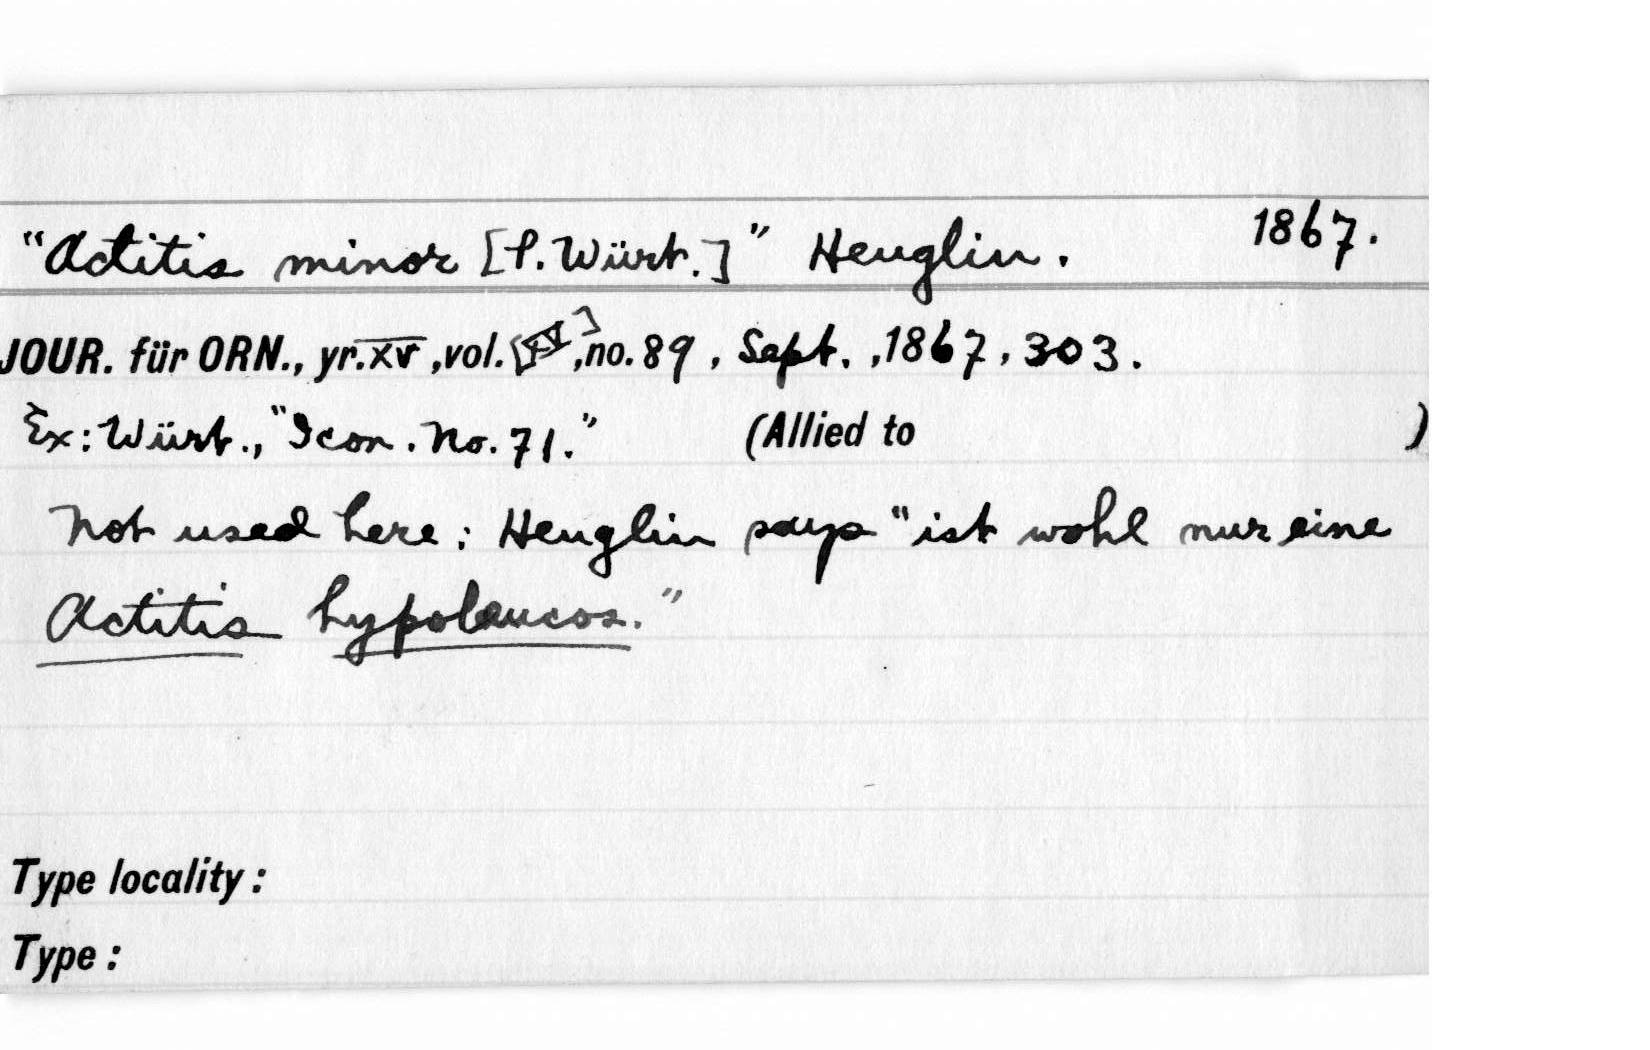 "Actitis minor [P. Würt.]" Heuglin. 1867.
JOUR. für ORN., yr. XV, vol. [XV], no. 89, Sept., 1867, 303.
Ex: Würt., "Icon. No. 71." (Allied to )
Not used here; Heuglin says "ist wohl nur eine
Actitis hypoleucos."
Type locality:
Type: